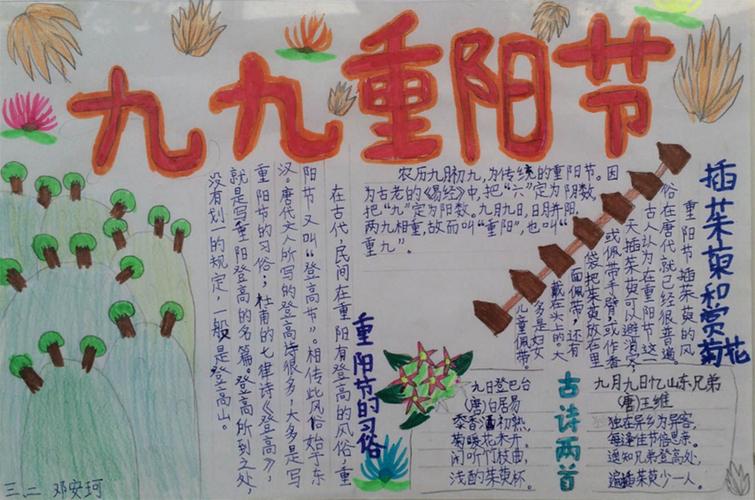 九九重阳节
农历九月初九,为传统的重阳节。因
为古老的《易经》中,把“六”定为阴数,
把“九”定为阳数。九月九日,日月并阳,
两九相重,故而叫“重阳”,也叫“
重九”。
插茱萸和赏菊花
重阳节插茱萸的风
俗在唐代就已经很普遍。
古人认为在重阳节这一
天插茱萸可以避消灾,
或佩带手臂,或作香
袋把茱萸放在里
面佩带,还有
戴在头上的。大
多是妇女
儿童佩带。
重阳节的习俗
在古代,民间在重阳有登高的风俗,重
阳节又叫“登高节”。相传此风俗始于东
汉。唐代文人所写的登高诗很多,大多是写
重阳节的习俗;杜甫的七律诗《登高》,
就是写重阳登高的名篇。登高所到之处,
没有划一的规定,一般是登高山。
古诗两首
九日登巴台
(唐)白居易
黍香酒初熟,
菊暖花未开。
闲听竹枝曲,
浅酌茱萸杯。
九月九日忆山东兄弟
(唐)王维
独在异乡为异客,
每逢佳节倍思亲。
遥知兄弟登高处,
遍插茱萸少一人。
三.二 邓安珂